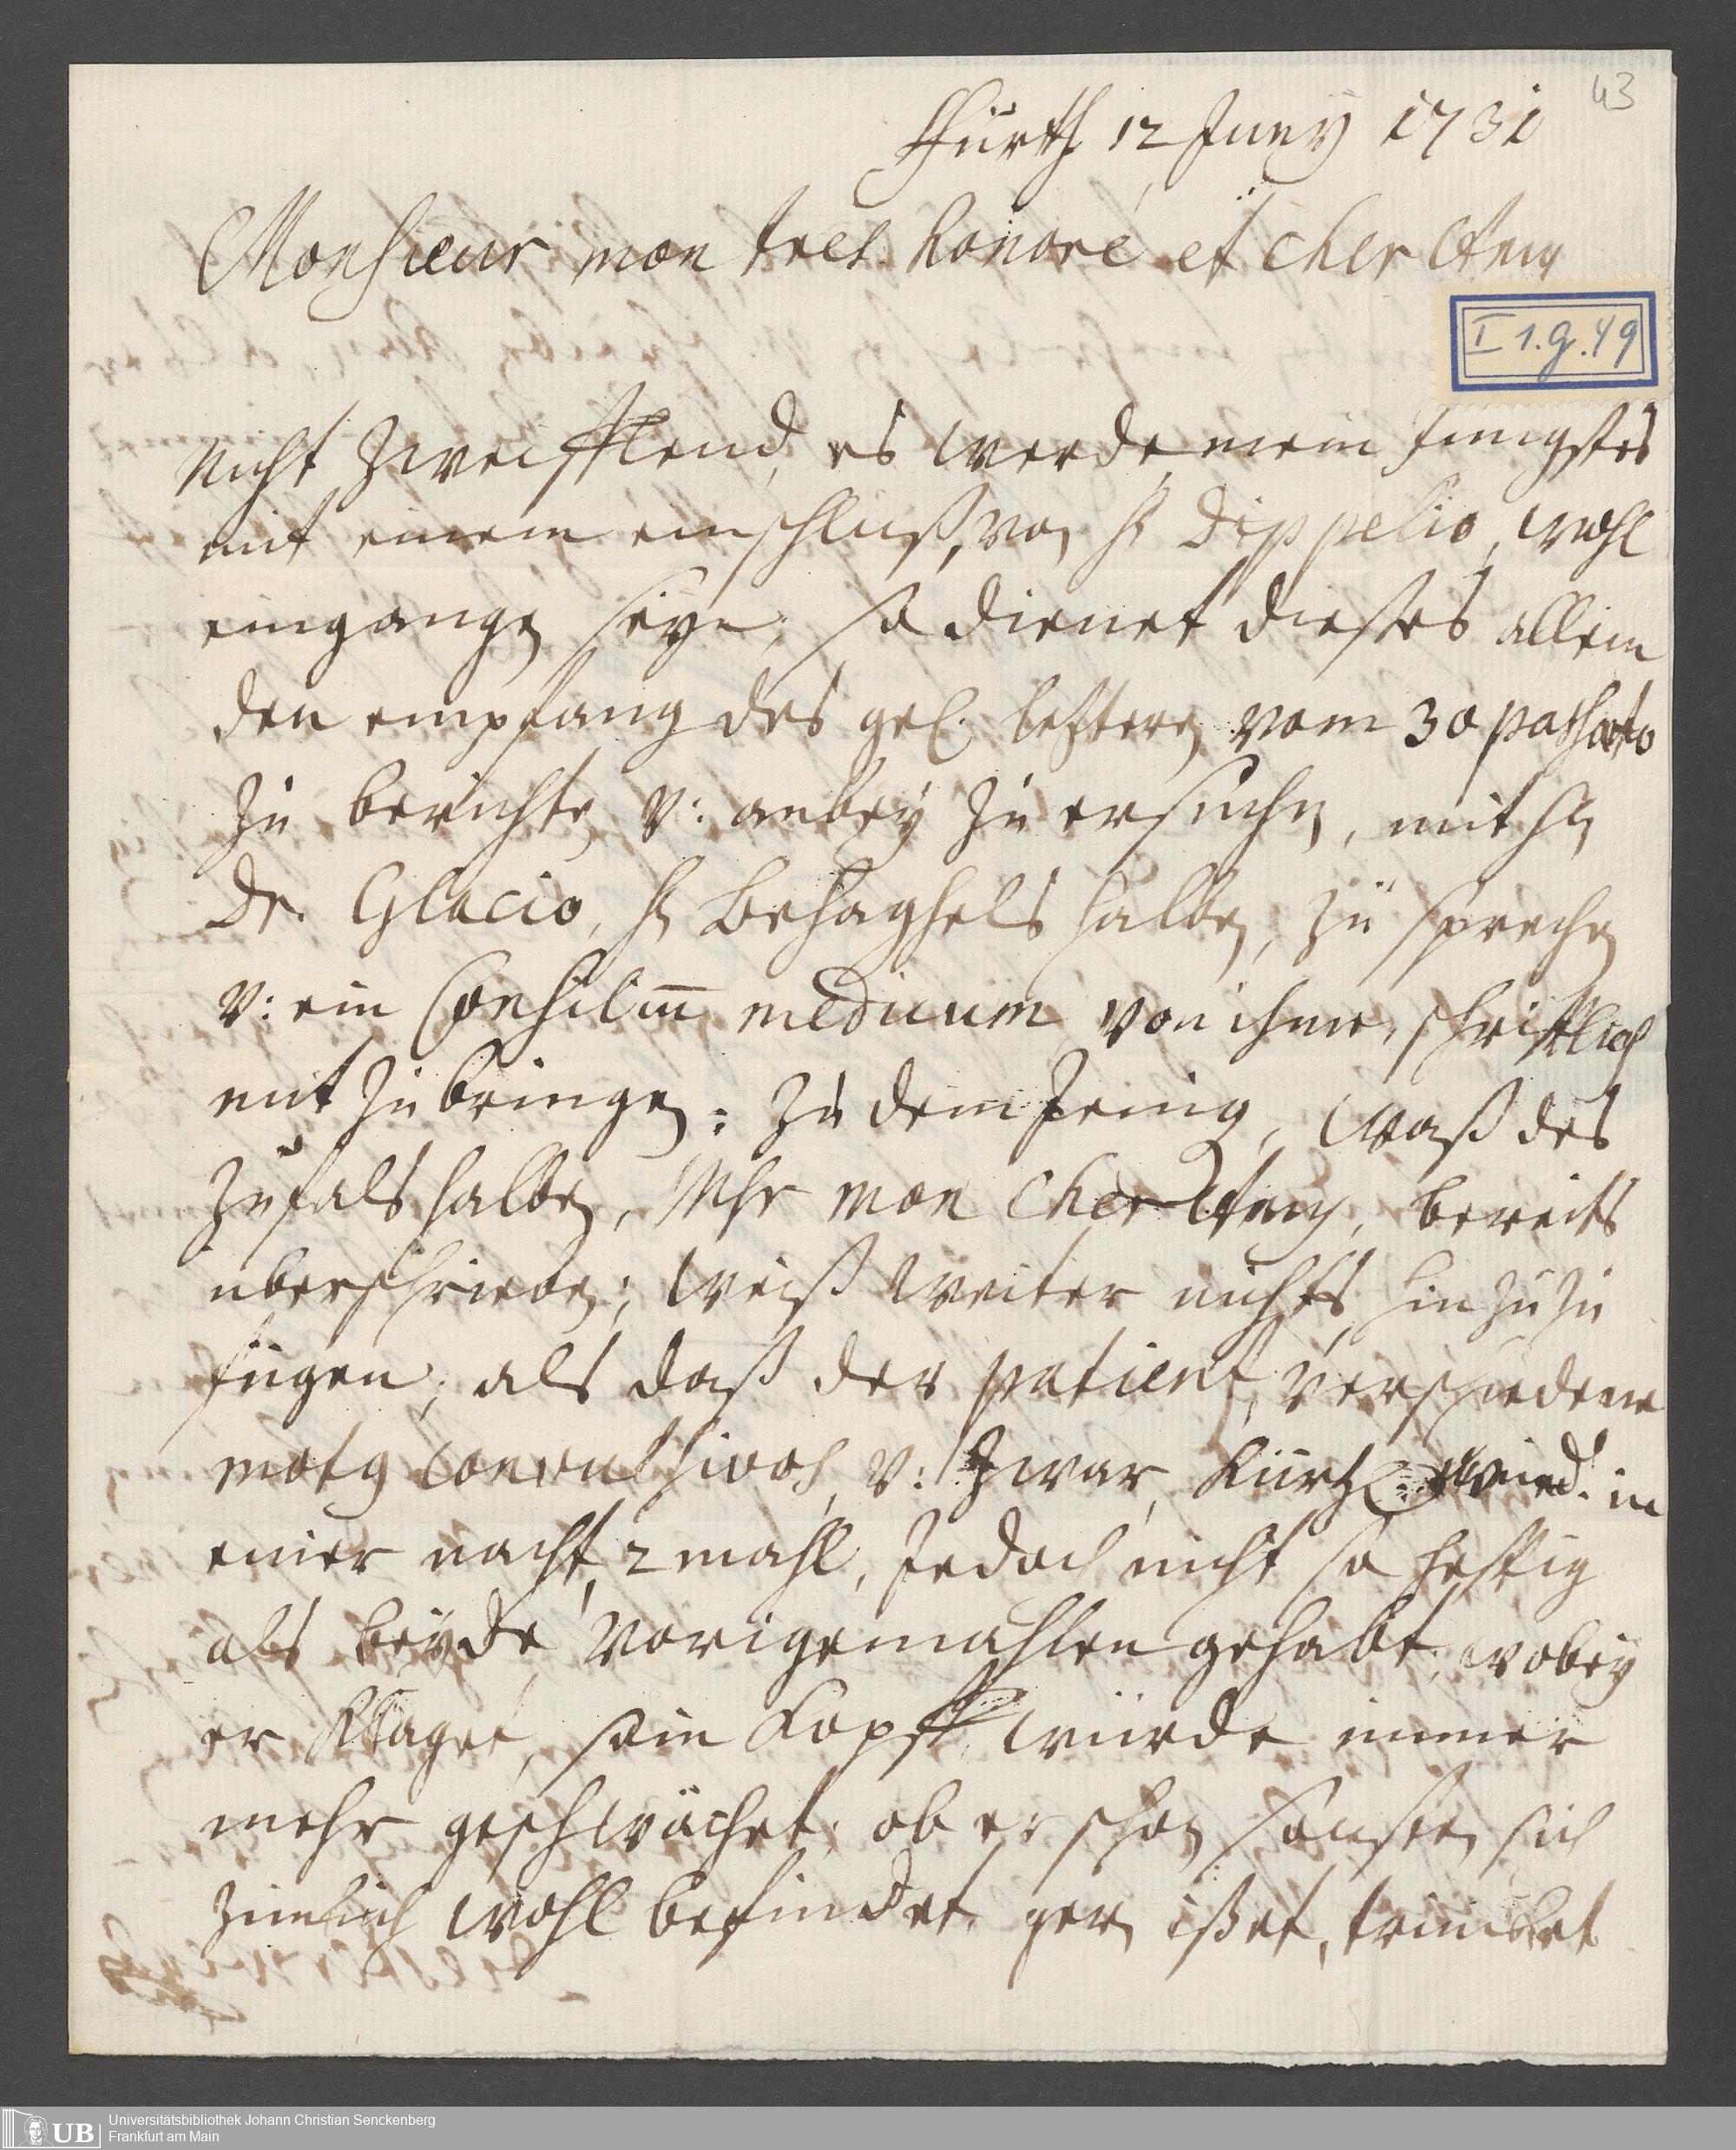 43
Fürth 12 Juny 1731
Monsieur mon tres honoré et cher Amy
I 1.g.49
Nicht zweifflend, es werde mein Jüngstes
mit einem einschluß, von H. Dippelio, wohl
eingangen seyn; so dienet dießes allein
den empfang des gel. letzteren vom 30 passato
zu berichten v: anbey zu ersuchen, mit Hn
Dr. Glacio, Hn Behaghels halben, zu sprechen
v: ein Consiliū medicum von ihme, schrifftlich
mit zu bringen: zu demjenig, waß des
Zufals halben, Mhr mon cher Amy, bereits
überschrieben; weiß weiter nichts hinzu zu
fügen; als daß der patient, verschiedene
motg convulsivos, v: zwar kürtzl. in
einer nacht, 2 mahl, Jedoch nicht so hefftig
als beyde vorigemahlen gehabt; wobey
er klaget, sein Kopff würde immer
mehr geschwächet; ob er schon sonsten sich
zimlich wohl befindet, gern ißet, trincket
UB
Universitätsbibliothek Johann Christian Senckenberg
Frankfurt am Main